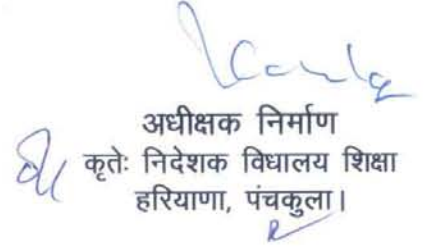 अधीक्षक निर्माण
कृतेः निदेशक विधालय शिक्षा
हरियाणा, पंचकुला।